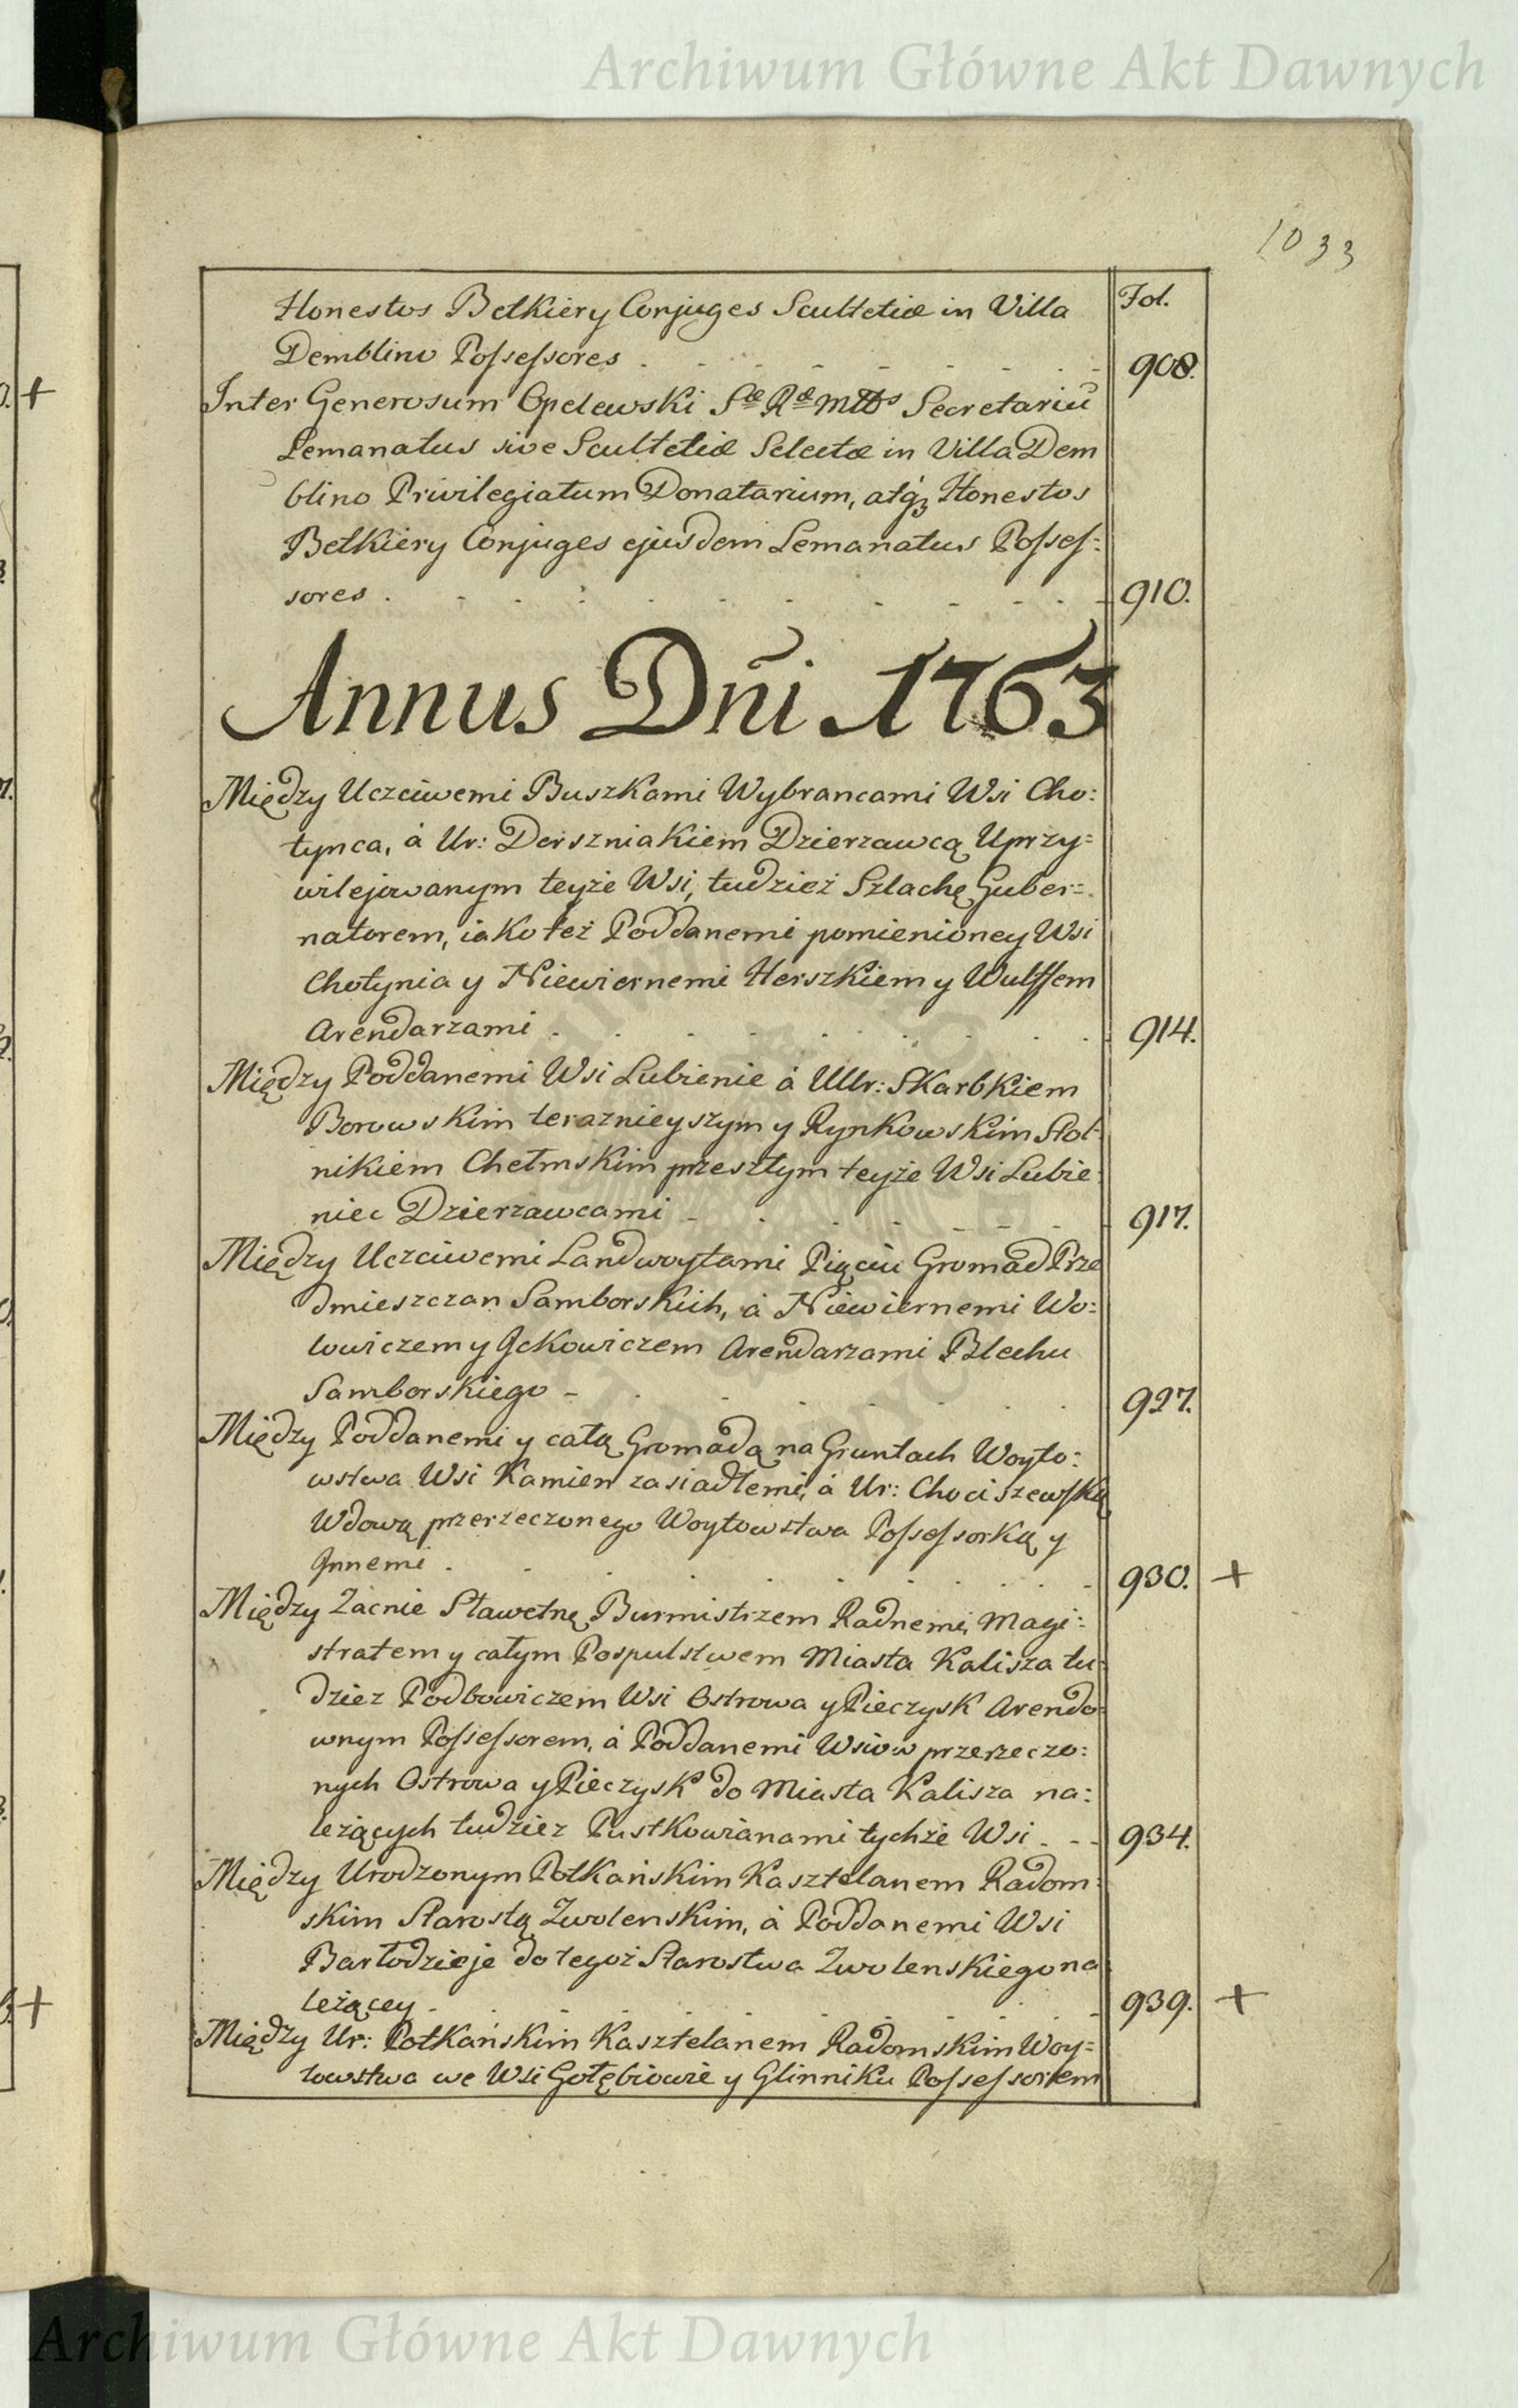 Archiwum Główne Akt Dawnych
1033
Fol.
Honestos Betkiery Conjuges Scultetiæ in Villa
Demblino Possessores . 908.
Inter Generosum Opelewski Sæ Ræ Mttis Secretariū
Lemanatus sive Scultetiæ Selectæ in Villa Dem
blino Privilegiatum Donatarium, atq3 Honestos
Betkiery Conjuges ejusdem Lemanatus Posses:
sores . 910.
Annus Dñi 1763
Między Uczciwemi Buszkami Wybrancami Wsi Cho:
tynca, á Ur: Derszniakiem Dzierzawcą Uprzy=
wilejowanym teyże Wsi, tudzież Szlachę Guber=
natorem, iako też Poddanemi pomienioney Wsi
Chotynia y Niewiernemi Herszkiem y Wulffem
Arendarzami . 914.
Między Poddanemi Wsi Lubienie á UUr: Skarbkiem
Borowskim teraznieyszym y Rynkowskim Stol
nikiem Chełmskim przeszłym teyże Wsi Lubie
niec Dzierzawcami 917.
Między Uczciwemi Landwoytami Piąciu Gromad Prze
dmieszczan Samborskich, á Niewiernemi Wo:
lowiczem y Jckowiczem Arendarzami Blechu
Samborskiego - 927.
Między Poddanemi y całą Gromadą na Gruntach Woyto:
wstwa Wsi Kamien zasiadłemi, á Ur: Chociszewską
Wdową przerzeczonego Woytowstwa Possessorką y
Jnnemi . 930. +
Między Zacnie Sławetnę Burmistrzem Radnemi, Magi:
stratem y całym Pospulstwem Miasta Kalisza tu:
dziez Podbowiczem Wsi Ostrowa y Pieczysk Arendo:
wnym Possessorem, á Poddanemi Wsiow przerzeczo:
nych Ostrowa y Pieczysk do Miasta Kalisza na:
leżących tudziez Pustkowianami tychże Wsi . - - 934.
Między Urodzonym Potkańskim Kasztelanem Radom:
skim Starostą Zwolenskim, á Poddanemi Wsi
Bartodzieje do tegoż Starostwa Zwolenskiego na
leżącey . 939. +
Między Ur: Potkańskim Kasztelanem Radomskim Woy=
towstwa we Wsi Gołębiowie y Glinniku Possessorem
Archiwum Główne Akt Dawnych